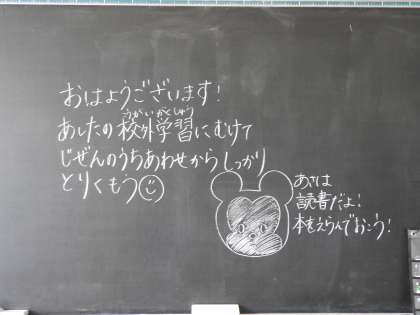 おはようございます!
あしたの校外学習にむけて
こうがいがくしゅう
じぜんのうちあわせからしっかり
とりくもう
あさは
読書だよ!
本をえらんでおこう!